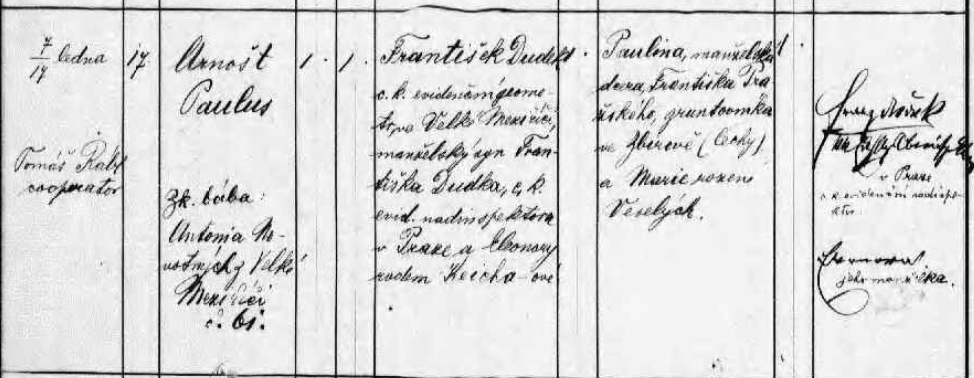 7/17 ledna
Tomáš
cooperator
17
Arnošt
Paulus
Zk. bába:
Antonia No-
votných z Velké
Meziříčí
č. 61.
1 . 1 .
František Dudek
c. k. evidenční geome-
tr ve Velké Meziříčí,
manželský syn Fran-
tiška Dudka, c. k.
evid. nadinspektora
v Praze a Eleonory
rodem
Paulina, manželská
dcera Františka Pra
žského, gruntovníka
ve Zbirově (Čechy)
a Marie rozen
Veselých.
1
v Praze
c. k. evidenční nadinspe-
ktor
jeho manželka.